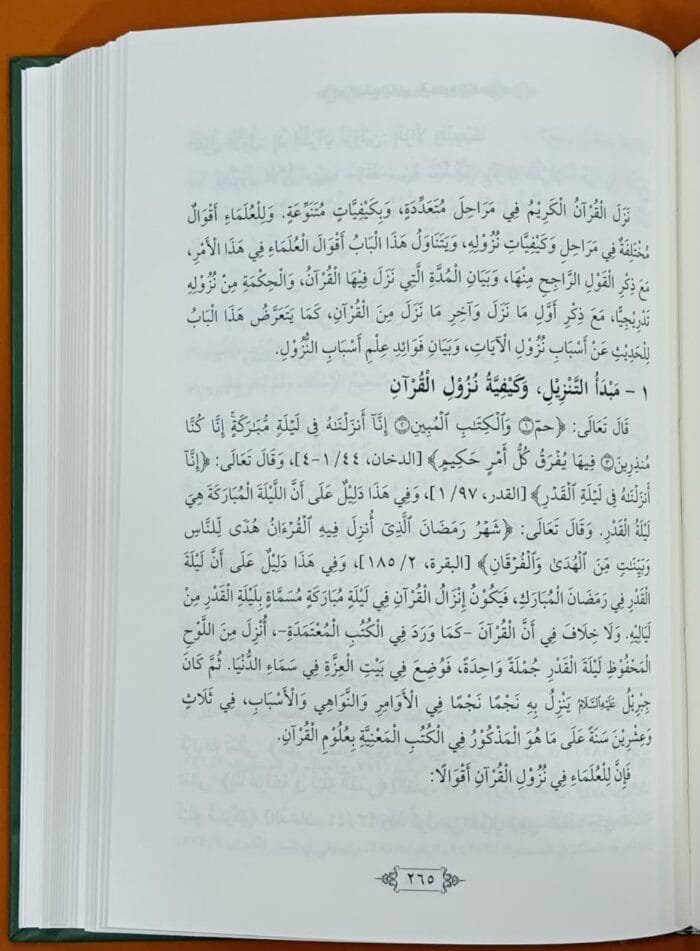 نَزَلَ الْقُرْآنُ الْكَرِيْمُ فِي مَرَاحِلَ مُتَعَدِّدَةٍ، وَبِكَيْفِيَّاتٍ مُتَنَوِّعَةٍ. وَلِلْعُلَمَاءِ أَقْوَالٌ
مُخْتَلِفَةٌ فِي مَرَاحِلِ وَكَيْفِيَّاتِ نُزُوْلِهِ، وَيَتَنَاوَلُ هَذَا الْبَابُ أَقْوَالَ الْعُلَمَاءِ فِي هَذَا الْأَمْرِ،
مَعَ ذِكْرِ الْقَوْلِ الرَّاجِحِ مِنْهَا، وَبَيَانِ الْمُدَّةِ الَّتِي نَزَلَ فِيهَا الْقُرْآنُ، وَالْحِكْمَةِ مِنْ نُزُوْلِهِ
تَدْرِيْجِيًّا، مَعَ ذِكْرِ أَوَّلِ مَا نَزَلَ وَآخِرِ مَا نَزَلَ مِنَ الْقُرْآنِ، كَمَا يَتَعَرَّضُ هَذَا الْبَابُ
لِلْحَدِيْثِ عَنْ أَسْبَابِ نُزُوْلِ الْآيَاتِ، وَبَيَانِ فَوَائِدِ عِلْمِ أَسْبَابِ النُّزُوْلِ.
١ - مَبْدَأُ التَّنْزِيْلِ، وَكَيْفِيَّةُ نُزُوْلِ الْقُرْآنِ
قَالَ تَعَالَى: ﴿حمٓ ۝١ وَالْكِتَابِ الْمُبِينِ ۝٢ إِنَّآ أَنزَلْنَٰهُ فِى لَيْلَةٍ مُّبَٰرَكَةٍۚ إِنَّا كُنَّا
مُنذِرِينَ ۝٣ فِيهَا يُفْرَقُ كُلُّ أَمْرٍ حَكِيمٍ﴾ [الدخان، ٤٤/ ١-٤]، وَقَالَ تَعَالَى: ﴿إِنَّآ
أَنزَلْنَٰهُ فِى لَيْلَةِ الْقَدْرِ﴾ [القدر، ٩٧/ ١]، وَفِي هَذَا دَلِيْلٌ عَلَى أَنَّ اللَّيْلَةَ الْمُبَارَكَةَ هِيَ
لَيْلَةُ الْقَدْرِ. وَقَالَ تَعَالَى: ﴿شَهْرُ رَمَضَانَ الَّذِىٓ أُنزِلَ فِيهِ الْقُرْءَانُ هُدًى لِّلنَّاسِ
وَبَيِّنَٰتٍ مِّنَ الْهُدَىٰ وَالْفُرْقَانِ﴾ [البقرة، ٢/ ١٨٥]، وَفِي هَذَا دَلِيْلٌ عَلَى أَنَّ لَيْلَةَ
الْقَدْرِ فِي رَمَضَانَ الْمُبَارَكِ، فَيَكُوْنُ إِنْزَالُ الْقُرْآنِ فِي لَيْلَةٍ مُبَارَكَةٍ مُسَمَّاةٍ بِلَيْلَةِ الْقَدْرِ مِنْ
لَيَالِيْهِ. وَلَا خِلَافَ فِي أَنَّ الْقُرْآنَ -كَمَا وَرَدَ فِي الْكُتُبِ الْمُعْتَمَدَةِ-، أُنْزِلَ مِنَ اللَّوْحِ
الْمَحْفُوْظِ لَيْلَةَ الْقَدْرِ جُمْلَةً وَاحِدَةً، فَوُضِعَ فِي بَيْتِ الْعِزَّةِ فِي سَمَاءِ الدُّنْيَا. ثُمَّ كَانَ
جِبْرِيْلُ عَلَيْهِ السَّلَامُ يَنْزِلُ بِهِ نَجْمًا نَجْمًا فِي الْأَوَامِرِ وَالنَّوَاهِي وَالْأَسْبَابِ، فِي ثَلَاثٍ
وَعِشْرِيْنَ سَنَةً عَلَى مَا هُوَ الْمَذْكُوْرُ فِي الْكُتُبِ الْمَعْنِيَّةِ بِعُلُوْمِ الْقُرْآنِ.
فَإِنَّ لِلْعُلَمَاءِ فِي نُزُوْلِ الْقُرْآنِ أَقْوَالًا:
٢٦٥